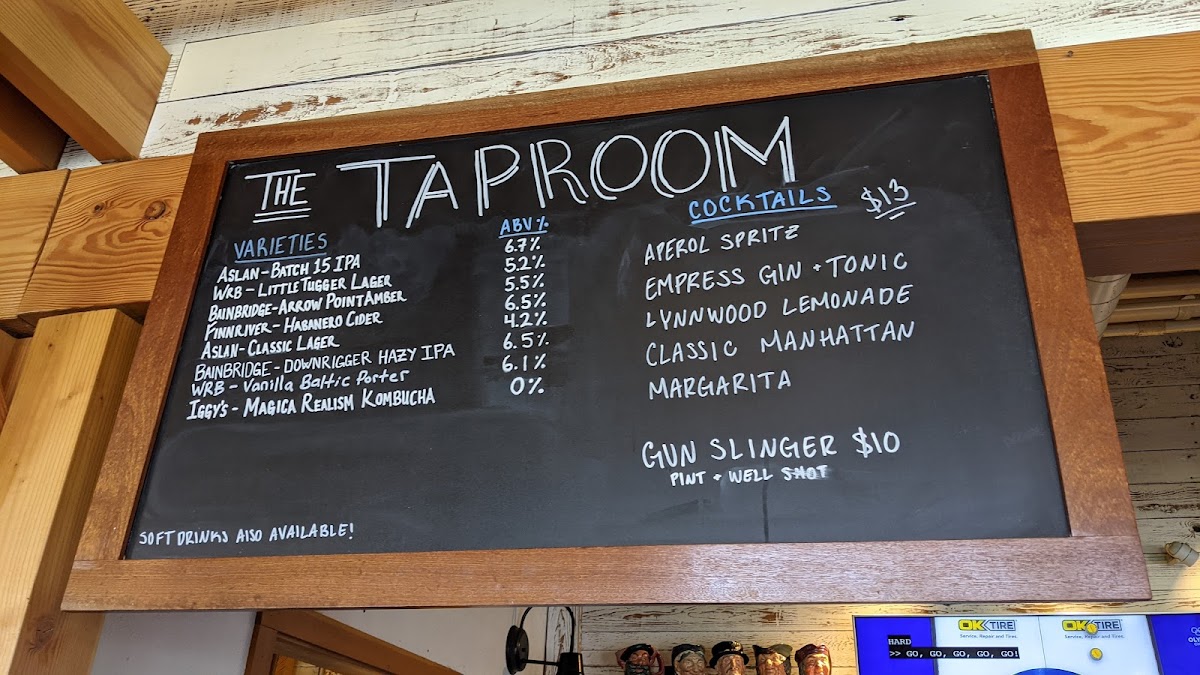 THE TAPROOM
VARIETIES
ABV %
ASLAN - BATCH 15 IPA 6.7%
WRB - LITTLE TUGGER LAGER 5.2%
BAINBRIDGE - ARROW POINT AMBER 5.5%
FINNRIVER - HABANERO CIDER 6.5%
ASLAN - CLASSIC LAGER 4.2%
BAINBRIDGE - DOWNRIGGER HAZY IPA 6.5%
WRB - Vanilla Baltic Porter 6.1%
IGGY'S - MAGICA REALISM KOMBUCHA 0%
SOFT DRINKS AlSO AVAILABLE!
COCKTAILS $13
APEROL SPRITZ
EMPRESS GIN + TONIC
LYNNWOOD LEMONADE
CLASSIC MANHATTAN
MARGARITA
GUN SLINGER $10
PINT + WELL SHOT
HARD
>> GO, GO, GO, GO, GO!
OK TIRE
Service, Repair and Tires.
OK TIRE
Service, Repair and Tires.